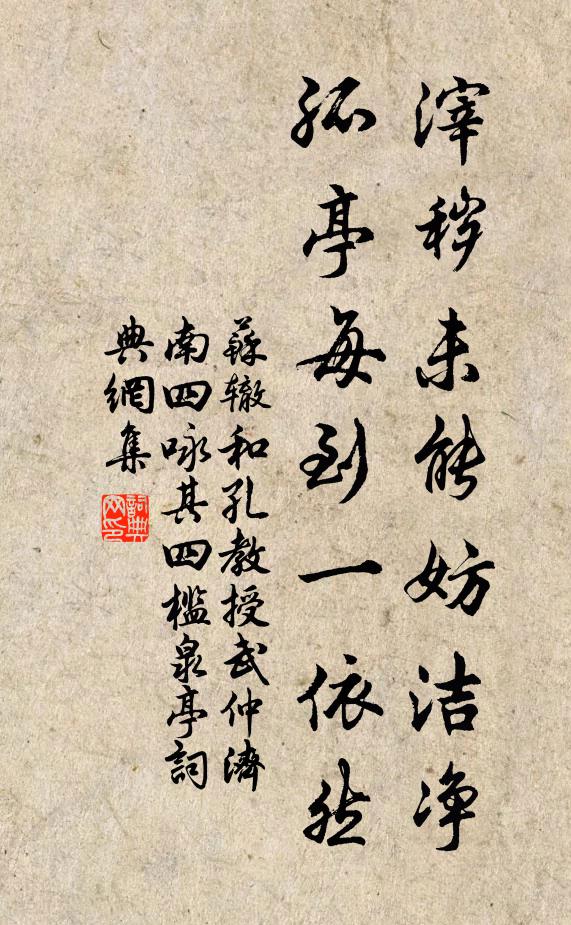 滓秽未能妨洁净
孤亭每到一依然
蘇辙和孔教授武仲濟
南四咏其四槛泉亭詞
典網集
詞典网印